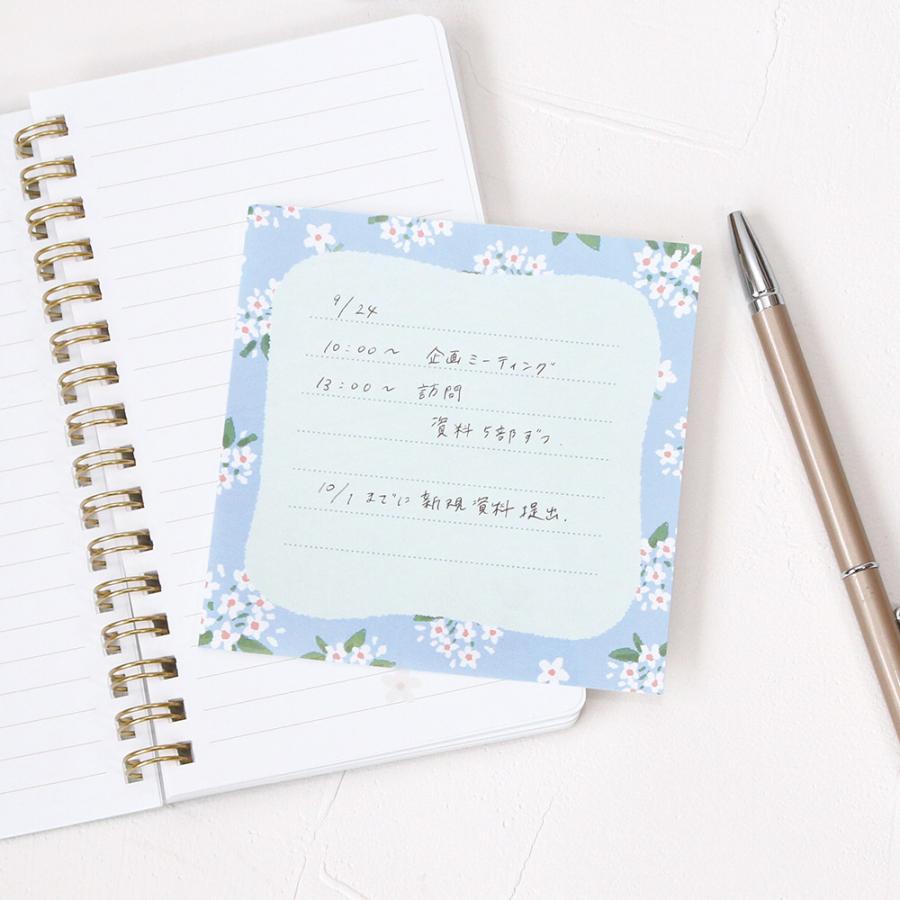 9/24
10:00〜 企画ミーティング
13:00〜 訪問
資料5部ずつ.
10/1までに新規資料提出.